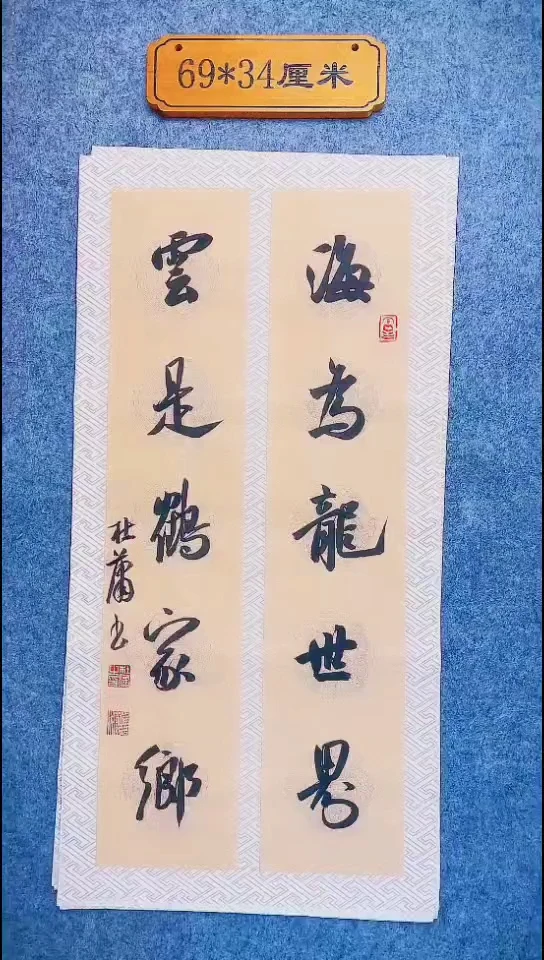 69*34厘米
海为龍世界
雲是鶴家鄉
杜蕭书